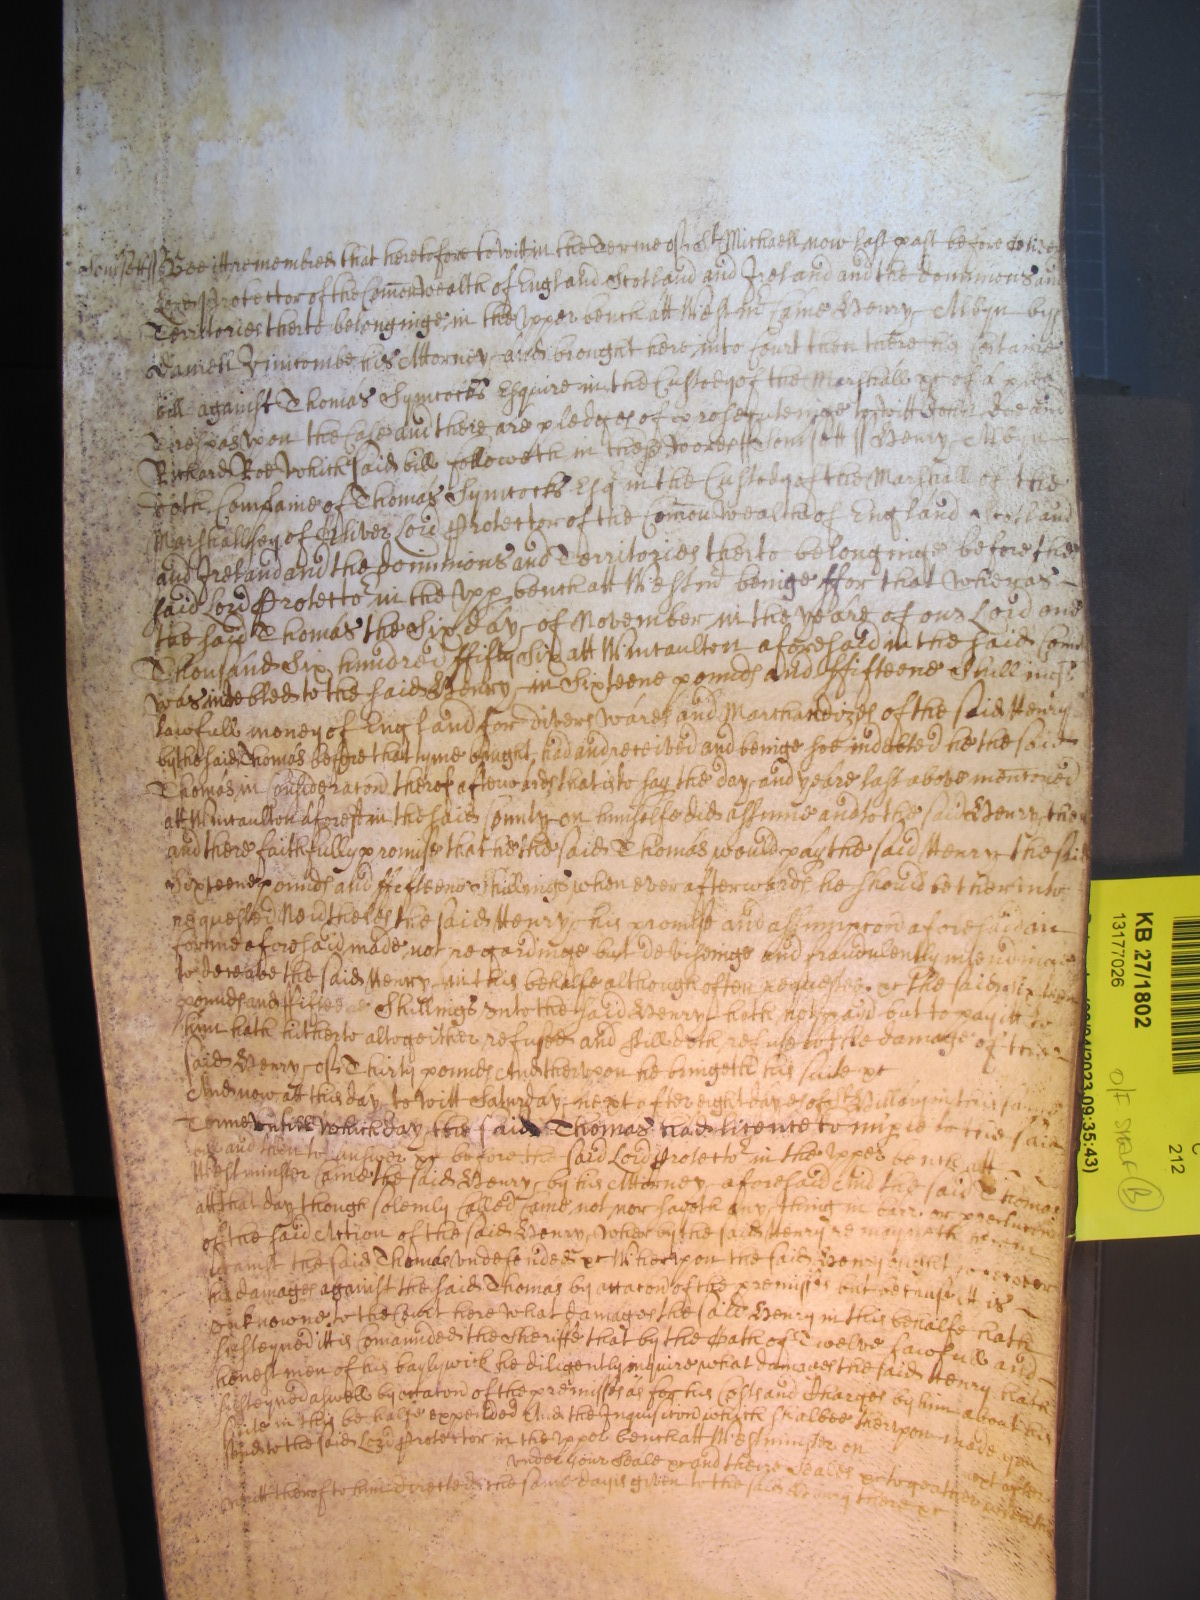 Som̃sett ss Bee itt remembred that heretofore to witt in the Terme of St Michaell now last past before Oliver
Lord Protector of the Com̃onwealth of England Scotland and Ireland and the Dominions and
Territories therto belonginge in the upper bench att Westm̃ came Henry Alleyn by
Daniell his Attorney and brought here into Court then there his certaine
bill against Thomas Symcocks Esquire in the Custody of the Marshall &c of a plea
Trespas upon the Case and there are pledges of prosecutinge to witt John Doe and
Richard Roe Which said bill followeth in these Words ss Som̃sett ss Henry Alleyn
doth Complaine of Thomas Symcocks Esq in the Custody of the Marshall of the
Marshallsey of Oliver Lord Protector of the Com̃on Wealth of England Scotland
and Ireland and the Dominions and Territories therto belonginge before the
said Lord Protector in the Upp bench att Westm̃ beinge ffor that Wheras
the said Thomas the Six day of November in the yeare of our Lord one
Thousand Six hundred ffifty Six att Wincaulton aforesaid in the said County
was indebted to the said Henry in Sixteene pounds and ffifteene Shillings
lawfull money of England for divers wares and Marchandizes of the said Henry
by the said Thomas before that tyme bought had and received and beinge soe indebted he the said
Thomas in Consideracon therof afterwards that is to say the day and yeare last above menconed
att Wincaulton aforesd in the said County on himselfe did assume and to the said Henry then
and there faithfully promise that he the said Thomas would pay the said Henry the said
Sixteene pounds and ffifteene Shillings when ever afterwards he should be therunto
requested Nevertheles the said Henry his promise and assumpcon aforesaid in
forme aforesaid made not regardinge but devisinge and fraudulently intendinge
to deceave the said Henry in this behalfe although often requested &c the said sixteene
pounds and ffifteene Shillings unto the said Henry hath not payd but to pay itt to
him hath hitherto altogeither refused and still doth refuse to the damage of the
said Henry of Thirty pounds And therupon he bringeth his suite &c
And now att this day to witt Saturday next after eight dayes of St Hillary in this same
Terme untill which day the said Thomas had licence to imparle to the said
bill and then to answer &c before the said Lord Protector in the Upper bench att
Westminster came the said Henry by his Attorney aforesaid And the said Thomas
att that day though solemly called came not nor saveth any thing in barr or preclusion
of the said Action of the said Henry Wherby the said Henry remayneth therin
against the said Thomas undefended &c Wherupon the said Henry ought to recover
his damages against the said Thomas by occacon of the premisses but because itt is
unknowne to the Court here What damages the said Henry in this behalfe hath
susteyned itt is comaunded the Sheriffe that by the Oath of Twelve lawfull and
honest men of his baylywick he diligently inquire what damages the said Henry hath
susteyned aswell by occacon of the premisses as for his Costs and Charges by him about his
suite in this behalfe expended And the Inquisicon which shalbee therupon made
send to the said Lord Protector in the Upper bench att Westminster on next after
under your Seale &c and there Seales &c togeather with the
writt therof to him directed the same day is given to the said Henry there &c
KB 27/1802
13177026
212
09:35:43)